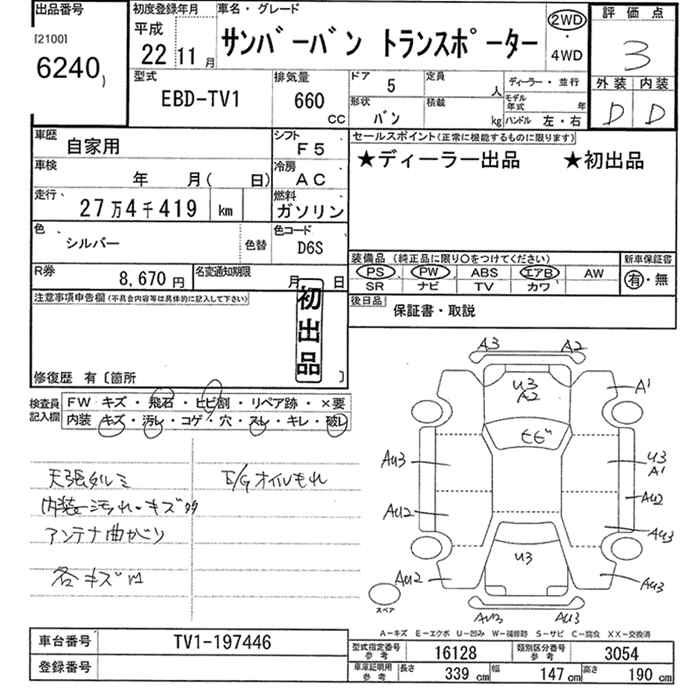 出品番号
[2100]
6240)
初度登録年月
平成
22 11月
車名・グレード
サンバーバン トランスポーター
2WD
・
4WD
評価点
3
外装 内装
D D
型式
EBD-TV1
排気量
660
CC
ドア
5
定員
人
ディーラー・並行
形状
バン
積載
kg
モデル年式 年
ハンドル 左・右
車歴
自家用
シフト
F5
セールスポイント(正常に機能するものに限ります)
★ディーラー出品 ★初出品
車検
年 月( 日)
冷房
AC
走行
27万4千419 km
燃料
ガソリン
色
シルバー
色替
色コード
D6S
装備品 (純正品に限り○をつけてください)
新車保証書
PS PW ABS エアB AW
SR ナビ TV カワ
有・無
R券
8,670円
名変通知期限
月 日
後日品
保証書・取説
注意事項申告欄(不具合内容等は具体的に記入して下さい)
初出品
修復歴 有〔箇所 〕
検査員記入欄
FW キズ・飛石・ヒビ割・リペア跡・×要
内装 キズ・汚レ・コゲ・穴・スレ・キレ・破レ
天張タルミ
内装汚れ・キズ
アンテナ曲がり
各キズ
E/Gオイルもれ
A3 A2
U3
A2
A1
ヒビ
AU3
U3
A1
AU2
AU2
AU3
U3
AU2
AU3
スペア
AU3
A-キズ E-エクボ U-凹み W-補修跡 S-サビ C-腐食 XX-交換済
車台番号
TV1-197446
登録番号
型式指定番号
参考
16128
類別区分番号
参考
3054
車庫証明用
参考
長さ
339 cm
幅
147 cm
高さ
190 cm